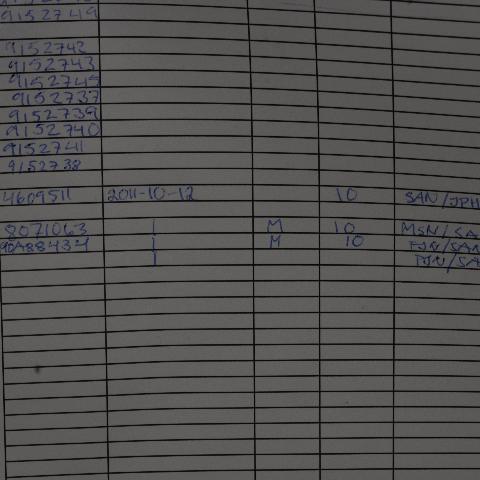 9152749
9152742
9152743
9152745
9152737
9152739
9152740
9152741
9152738
4609511 2011-10-12 10 SAN/JPH
8071063 | M 10 MSN/SA
90A88434 | M 10 FJN/SAN
| PJN/SA